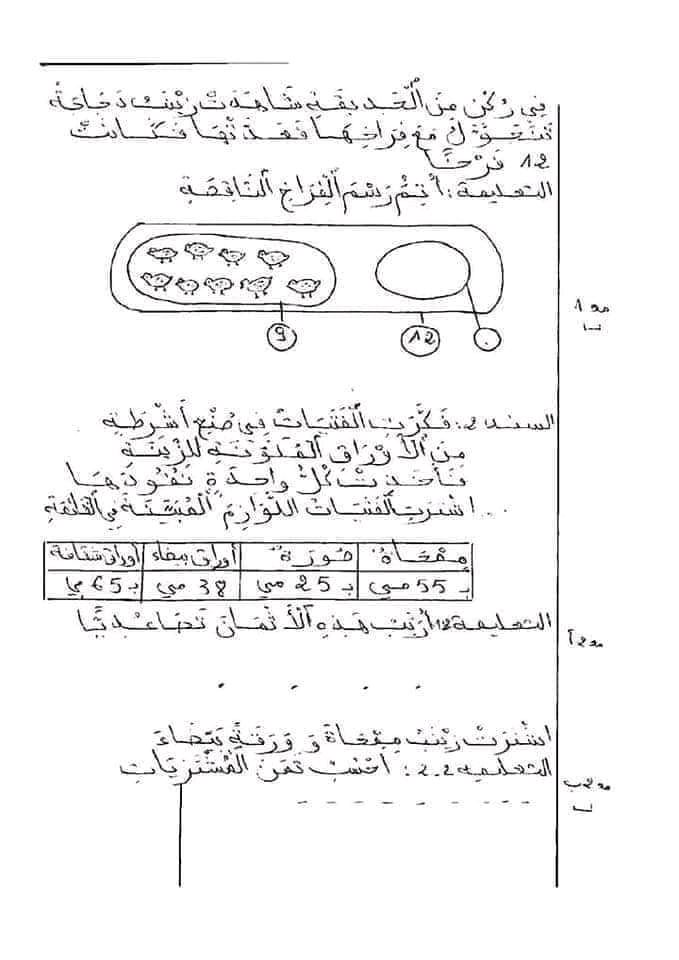 فِي رُكْنٍ مِنَ الْحَدِيقَةِ شَاهَدَتْ زَيْنَبُ دَجَاجَةً
تَتَجَوَّلُ مَعَ فِرَاخِهَا فَعَدَّتْهَا فَكَانَتْ
12 فَرْخًا
التعليمة: أُتِمُّ رَسْمَ الْفِرَاخِ النَّاقِصَةِ
9
12
.
مع 1
السند 2: فَكَّرَتِ الْفَتَيَاتُ فِي صُنْعِ أَشْرِطَةٍ
مِنَ الْأَوْرَاقِ الْمُلَوَّنَةِ لِلزِّينَةِ
فَأَخَذَتْ كُلُّ وَاحِدَةٍ نُقُودَهَا
... اِشْتَرَتِ الْفَتَيَاتُ اللَّوَازِمَ الْمُبَيَّنَةَ فِي الْقَائِمَةِ
مِمْحَاةٌ صُورَةٌ أوراق بيضاء أوراق شفافة
بـ 55 مي بـ 25 مي 38 مي بـ 65 مي
التعليمة 1.2 أُرَتِّبُ هَذِهِ الْأَثْمَانَ تَصَاعُدِيًّا
مع 2 أ
. . . .
اِشْتَرَتْ زَيْنَبُ مِمْحَاةً وَ وَرَقَةً بَيْضَاءَ
التعليمة 2.2: أَحْسُبُ ثَمَنَ الْمُشْتَرَيَاتِ
مع 2 ب